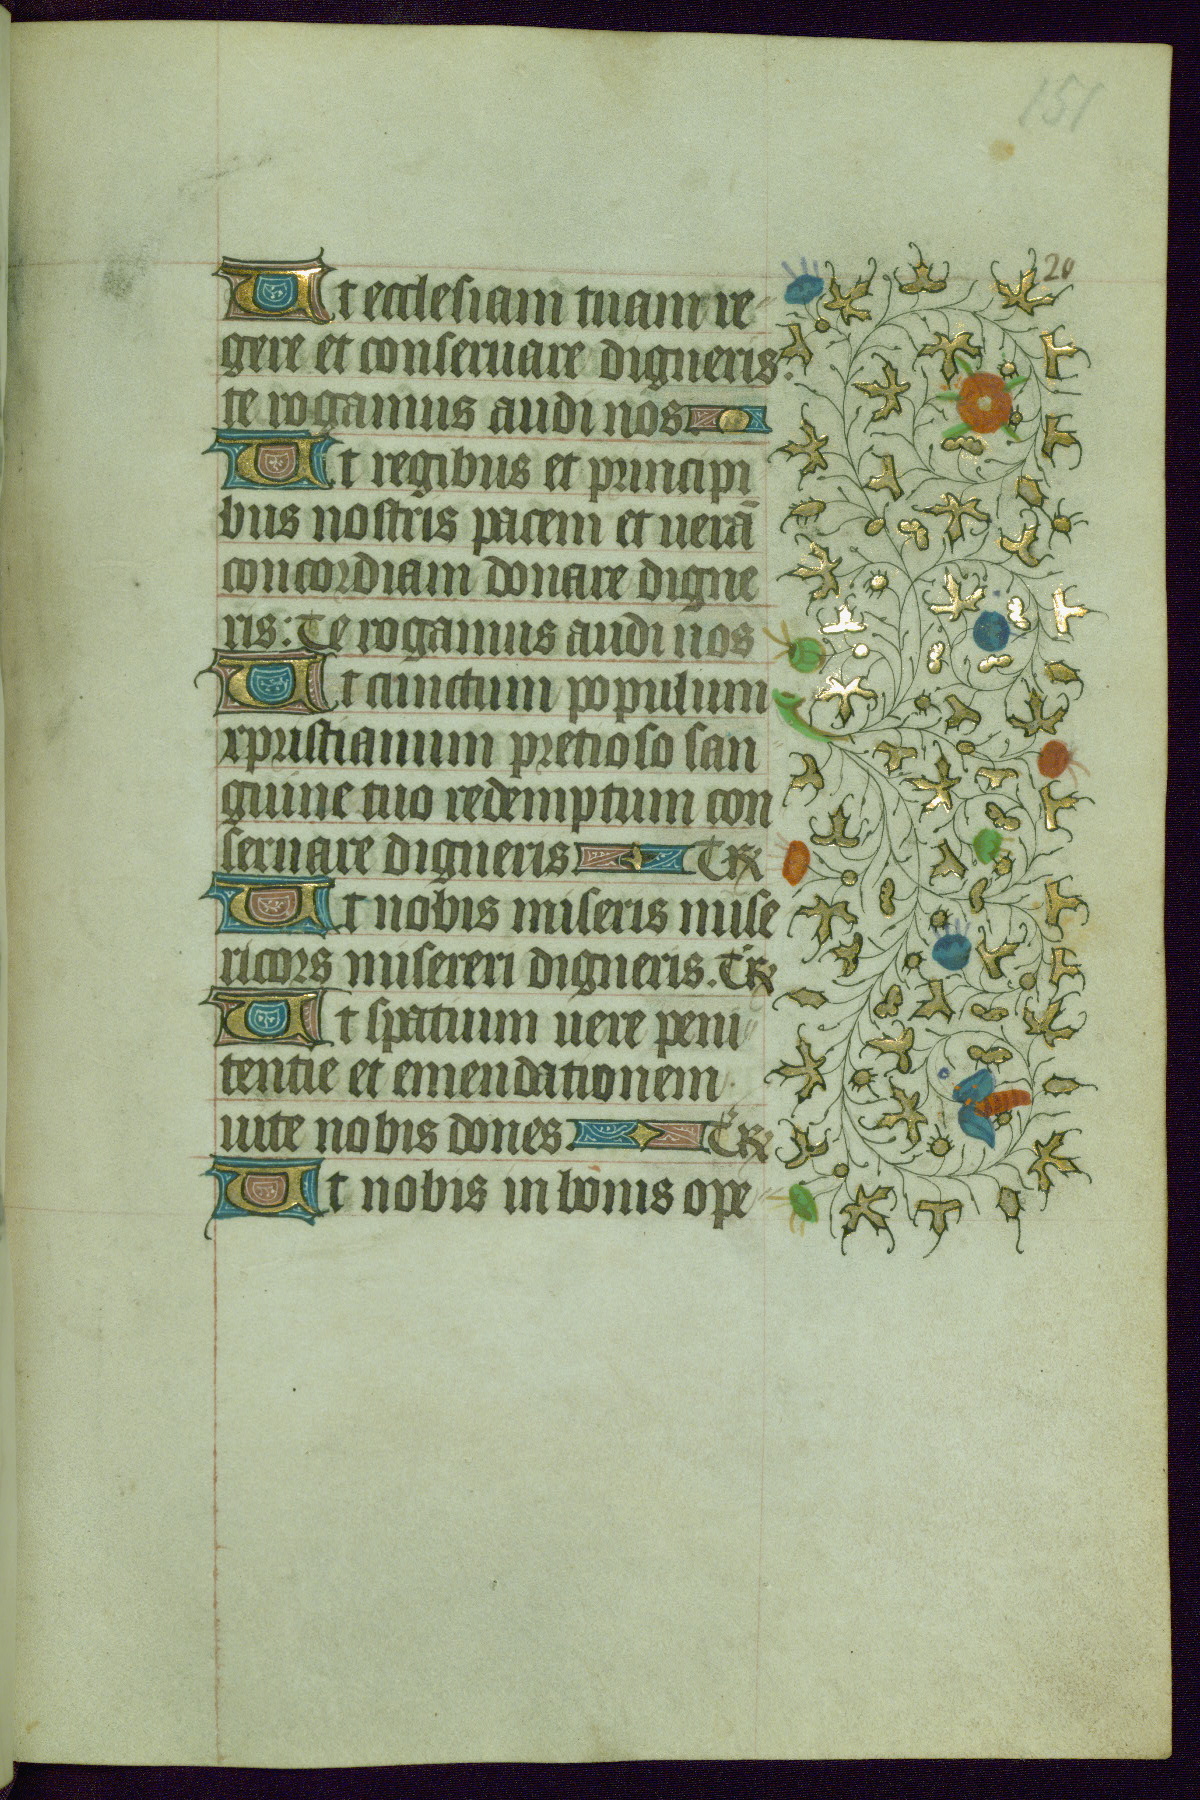 151
20
Ut ecclesiam tuam re
gere et conseruare digneris.
te rogamus audi nos
Ut regibus et principi
bus nostris pacem et uerā
concordiam donare digne
ris: Te rogamus audi nos
Ut cunctum populum
xpristianum pretioso san
guine tuo redemptum con
seruare digneris T R
Ut nobis miseris mise
ricors misereri digneris. T R
Ut spatium uere peni
tentie et emendationem
uite nobis dones T R
Ut nobis in bonis ope